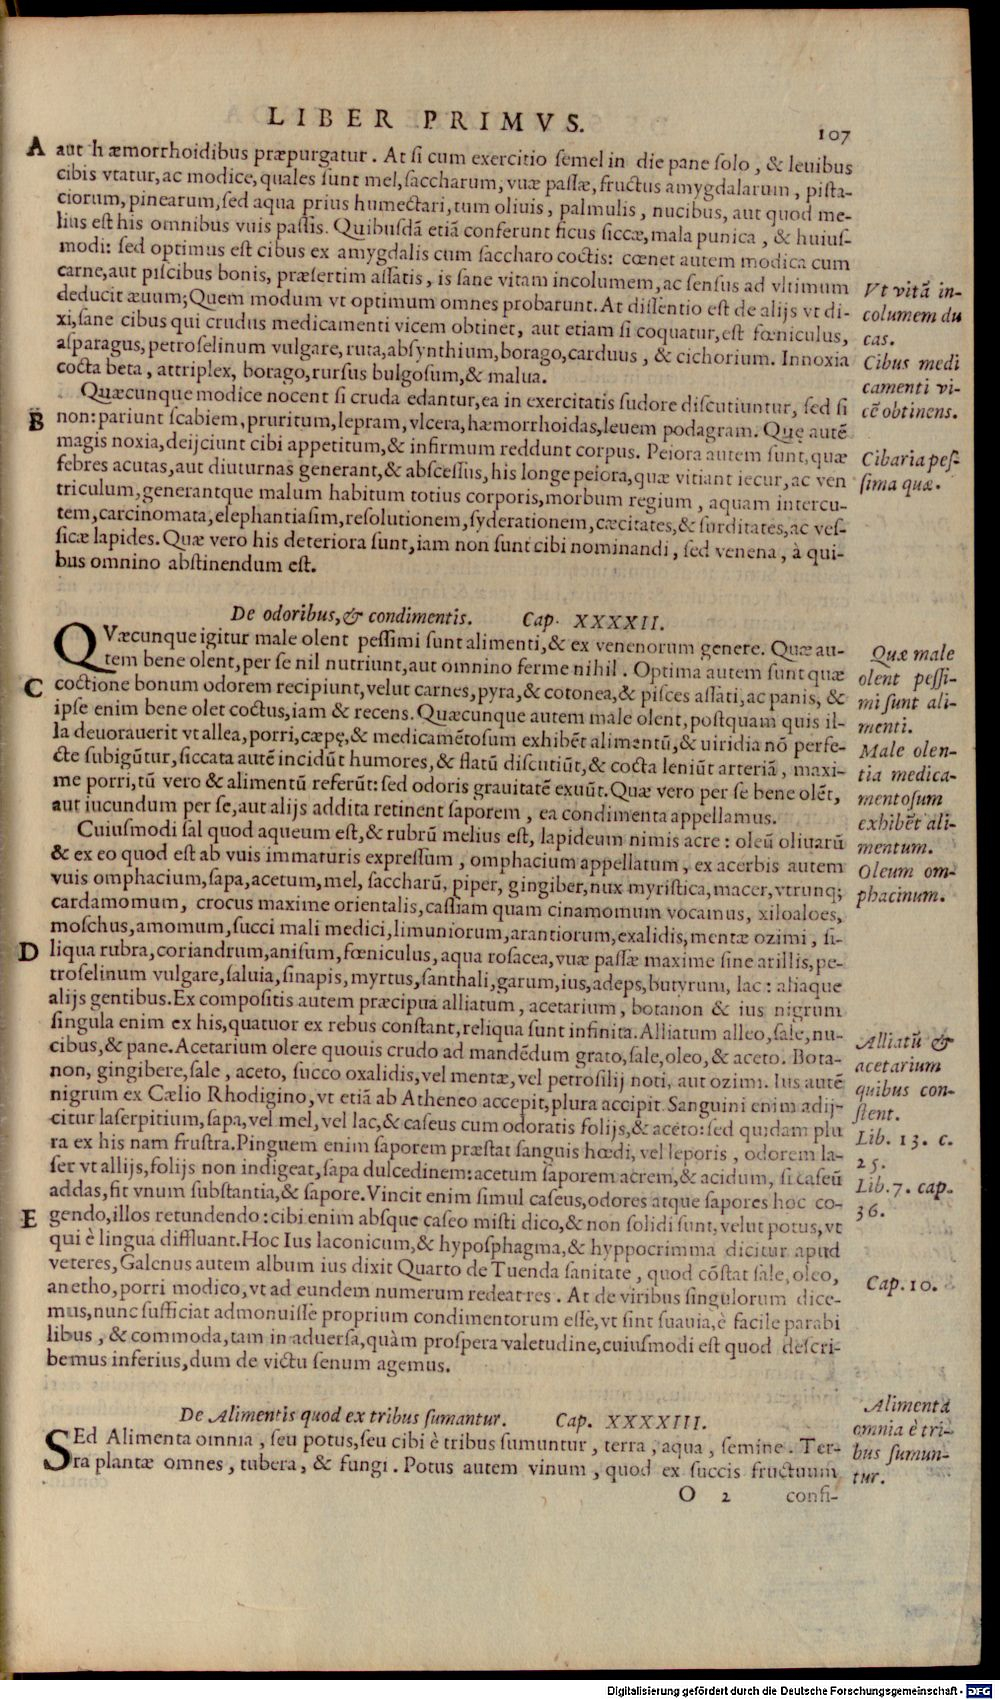 LIBER PRIMVS.
107
A aut hæmorrhoidibus præpurgatur. At ſi cum exercitio ſemel in die pane ſolo, & leuibus
cibis vtatur, ac modice, quales ſunt mel, ſaccharum, vuæ paſſæ, fructus amygdalarum, piſta-
ciorum, pinearum, ſed aqua prius humectari, tum oliuis, palmulis, nucibus, aut quod me-
lius eſt his omnibus vuis paſſis. Quibuſdã etiã conferunt ficus ſiccæ, mala punica, & huiuſ-
modi: ſed optimus eſt cibus ex amygdalis cum ſaccharo coctis: cœnet autem modica cum
carne, aut piſcibus bonis, præſertim aſſatis, is ſane vitam incolumem, ac ſenſus ad vltimum
deducit æuum; Quem modum vt optimum omnes probarunt. At diſſentio eſt de alijs vt di-
xi, ſane cibus qui crudus medicamenti vicem obtinet, aut etiam ſi coquatur, eſt fœniculus,
aſparagus, petroſelinum vulgare, ruta, abſynthium, borago, carduus, & cichorium. Innoxia
cocta beta, attriplex, borago, rurſus bulgoſum, & malua.
Vt vitã in-
columem du
cas.
Cibus medi
camenti vi-
cẽ obtinens.
Quæcunque modice nocent ſi cruda edantur, ea in exercitatis ſudore diſcutiuntur, ſed ſi
B non: pariunt ſcabiem, pruritum, lepram, vlcera, hæmorrhoidas, leuem podagram. Quę autẽ
magis noxia, deijciunt cibi appetitum, & infirmum reddunt corpus. Peiora autem ſunt, quæ
febres acutas, aut diuturnas generant, & abſceſſus, his longe peiora, quæ vitiant iecur, ac ven
triculum, generantque malum habitum totius corporis, morbum regium, aquam intercu-
tem, carcinomata, elephantiaſim, reſolutionem, ſyderationem, cæcitates, & ſurditates, ac veſ-
ſicæ lapides. Quæ vero his deteriora ſunt, iam non ſunt cibi nominandi, ſed venena, à qui-
bus omnino abſtinendum eſt.
Cibaria peſ-
ſima quæ.
De odoribus, & condimentis. Cap. XXXXII.
QVæcunque igitur male olent peſſimi ſunt alimenti, & ex venenorum genere. Quæ au-
tem bene olent, per ſe nil nutriunt, aut omnino ferme nihil. Optima autem ſunt quæ
C coctione bonum odorem recipiunt, velut carnes, pyra, & cotonea, & piſces aſſati, ac panis, &
ipſe enim bene olet coctus, iam & recens. Quæcunque autem male olent, poſtquam quis il-
la deuorauerit vt allea, porri, cæpę, & medicamẽtoſum exhibẽt alimentũ, & uiridia nõ perfe-
cte ſubigũtur, ſiccata autẽ incidũt humores, & flatũ diſcutiũt, & cocta leniũt arteriã, maxi-
me porri, tũ vero & alimentũ referũt: ſed odoris grauitatẽ exuũt. Quæ vero per ſe bene olẽt,
aut iucundum per ſe, aut alijs addita retinent ſaporem, ea condimenta appellamus.
Quæ male
olent peſſi-
mi ſunt ali-
menti.
Male olen-
tia medica-
mentoſum
exhibẽt ali-
mentum.
Oleum om-
phacinum.
Cuiuſmodi ſal quod aqueum eſt, & rubrũ melius eſt, lapideum nimis acre: oleũ oliuarũ
& ex eo quod eſt ab vuis immaturis expreſſum, omphacium appellatum, ex acerbis autem
vuis omphacium, ſapa, acetum, mel, ſaccharũ, piper, gingiber, nux myriſtica, macer, vtrunq;
cardamomum, crocus maxime orientalis, caſſiam quam cinamomum vocamus, xiloaloes,
moſchus, amomum, ſucci mali medici, limuniorum, arantiorum, exalidis, mentæ ozimi, ſi-
D liqua rubra, coriandrum, aniſum, fœniculus, aqua roſacea, vuæ paſſæ maxime ſine arillis, pe-
troſelinum vulgare, ſaluia, ſinapis, myrtus, ſanthali, garum, ius, adeps, butyrum, lac: aliaque
alijs gentibus. Ex compoſitis autem præcipua alliatum, acetarium, botanon & ius nigrum
ſingula enim ex his, quatuor ex rebus conſtant, reliqua ſunt infinita. Alliatum alleo, ſale, nu-
cibus, & pane. Acetarium olere quouis crudo ad mandẽdum grato, ſale, oleo, & aceto. Bota-
non, gingibere, ſale, aceto, ſucco oxalidis, vel mentæ, vel petroſilij noti, aut ozimi. Ius autẽ
nigrum ex Cælio Rhodigino, vt etiã ab Atheneo accepit, plura accipit. Sanguini enim adij-
citur laſerpitium, ſapa, vel mel, vel lac, & caſeus cum odoratis folijs, & aceto: ſed quidam plu
ra ex his nam fruſtra. Pinguem enim ſaporem præſtat ſanguis hœdi, vel leporis, odorem la-
ſer vt allijs, folijs non indigeat, ſapa dulcedinem: acetum ſaporem acrem, & acidum, ſi caſeũ
addas, fit vnum ſubſtantia, & ſapore. Vincit enim ſimul caſeus, odores atque ſapores hoc co-
E gendo, illos retundendo: cibi enim abſque caſeo miſti dico, & non ſolidi ſunt, velut potus, vt
qui è lingua diffluant. Hoc Ius laconicum, & hypoſphagma, & hyppocrimma dicitur apud
veteres, Galenus autem album ius dixit Quarto de Tuenda ſanitate, quod cõſtat ſale, oleo,
anetho, porri modico, vt ad eundem numerum redeat res. At de viribus ſingulorum dice-
mus, nunc ſufficiat admonuiſſe proprium condimentorum eſſe, vt ſint ſuauia, è facile parabi
libus, & commoda, tam in aduerſa, quàm proſpera valetudine, cuiuſmodi eſt quod deſcri-
bemus inferius, dum de victu ſenum agemus.
Alliatũ &
acetarium
quibus con-
ſtent.
Lib. 13. c.
25.
Lib. 7. cap.
36.
Cap. 10.
De Alimentis quod ex tribus ſumantur. Cap. XXXXIII.
SEd Alimenta omnia, ſeu potus, ſeu cibi è tribus ſumuntur, terra, aqua, ſemine. Ter-
ra plantæ omnes, tubera, & fungi. Potus autem vinum, quod ex ſuccis fructuum
Alimenta
omnia è tri-
bus ſumun-
tur.
O 2 confi-
Digitalisierung gefördert durch die Deutsche Forschungsgemeinschaft - DFG